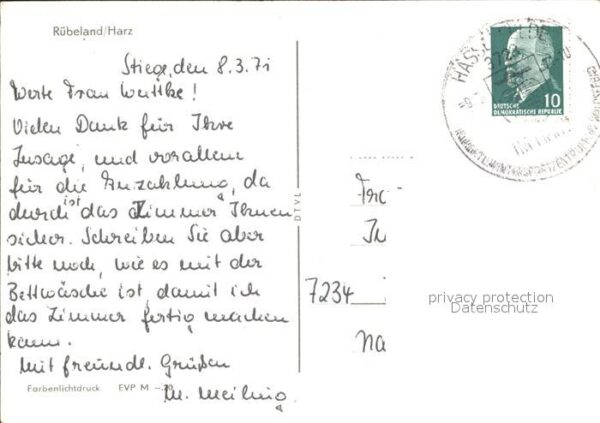 Rübeland/Harz
Stiege, den 8.3.71
Werte Frau Wuttke!
Vielen Dank für Ihre
Zusage, und vorallem
für die Anzahlung, da
durch ist das Zimmer Ihnen
sicher. Schreiben Sie aber
bitte noch, wie es mit der
Bettwäsche ist, damit ich
das Zimmer fertig machen
kann.
Mit freundl. Grüßen
M. Meiling
Farbenlichtdruck EVP M -.20
DTVL
HASSELFELDE
10
DEUTSCHE
DEMOKRATISCHE REPUBLIK
Fra
In
7234
Na
privacy protection
Datenschutz